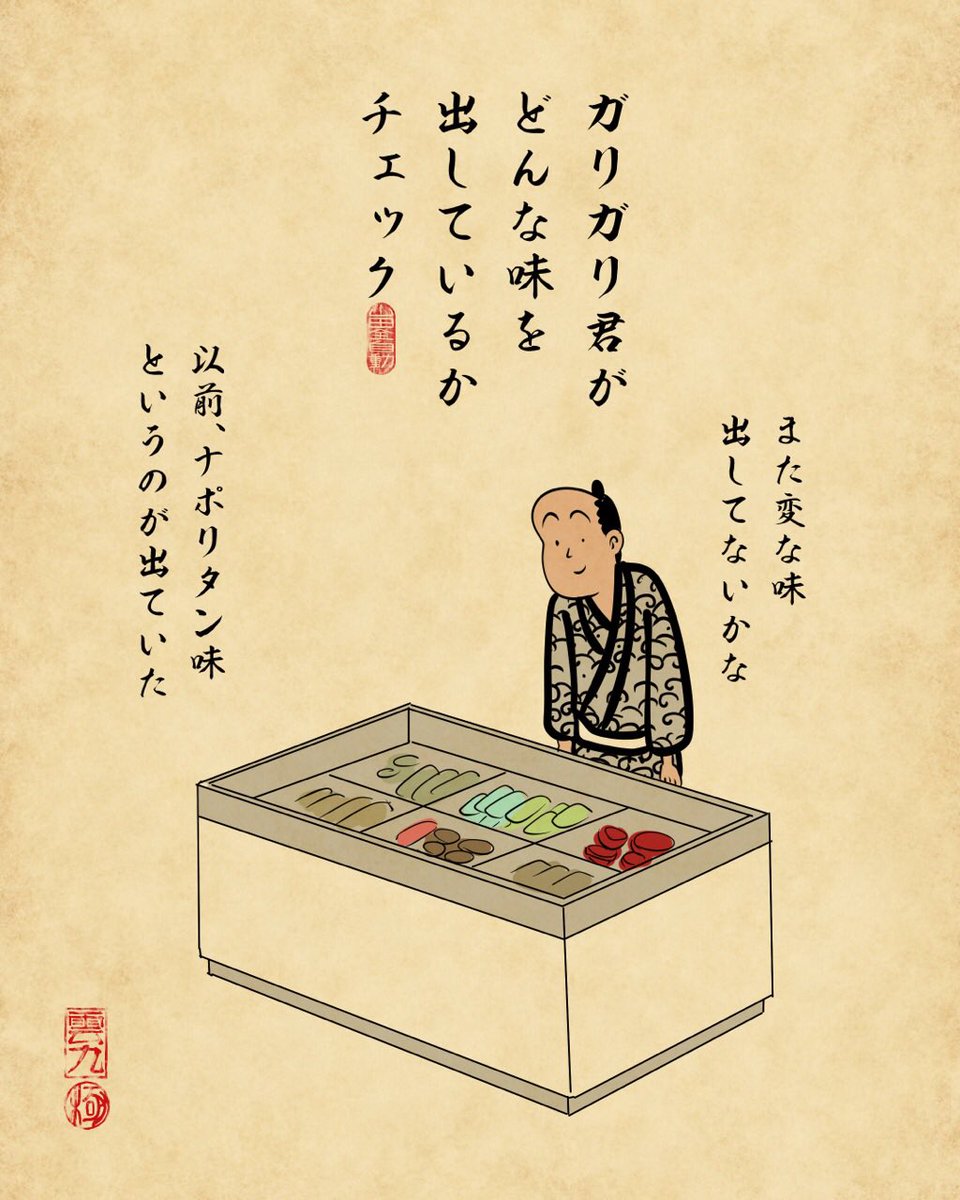 ガリガリ君が
どんな味を
出しているか
チェック
また変な味
出してないかな
以前、ナポリタン味
というのが出ていた